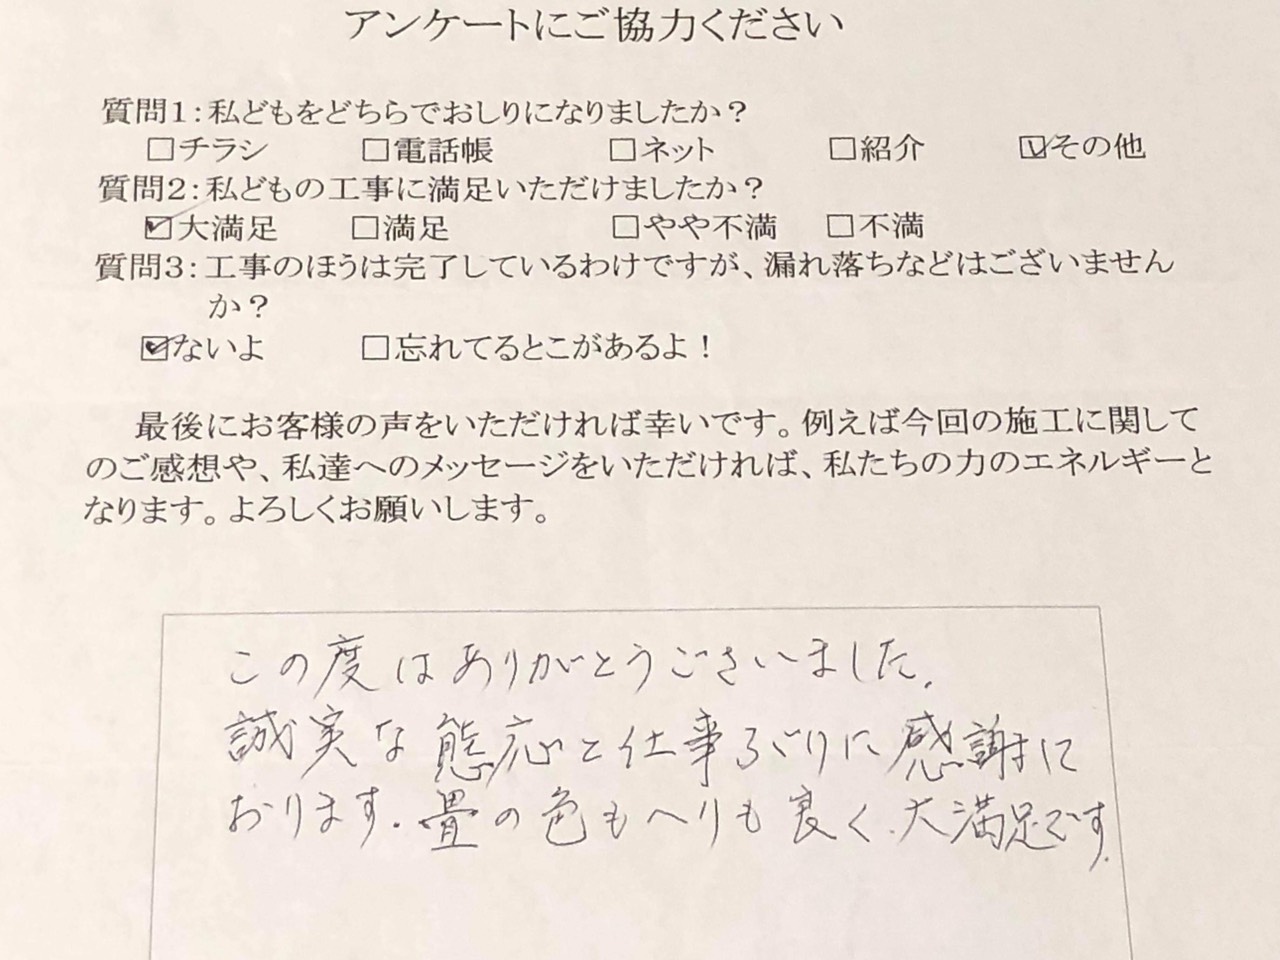 アンケートにご協力ください
質問1:私どもをどちらでおしりになりましたか?
□チラシ □電話帳 □ネット □紹介 ☑その他
質問2:私どもの工事に満足いただけましたか?
☑大満足 □満足 □やや不満 □不満
質問3:工事のほうは完了しているわけですが、漏れ落ちなどはございません
か?
☑ないよ □忘れてるとこがあるよ!
最後にお客様の声をいただければ幸いです。例えば今回の施工に関して
のご感想や、私達へのメッセージをいただければ、私たちの力のエネルギーと
なります。よろしくお願いします。
この度はありがとうございました。
誠実な態応と仕事ぶりに感謝して
おります。畳の色もへりも良く、大満足です。